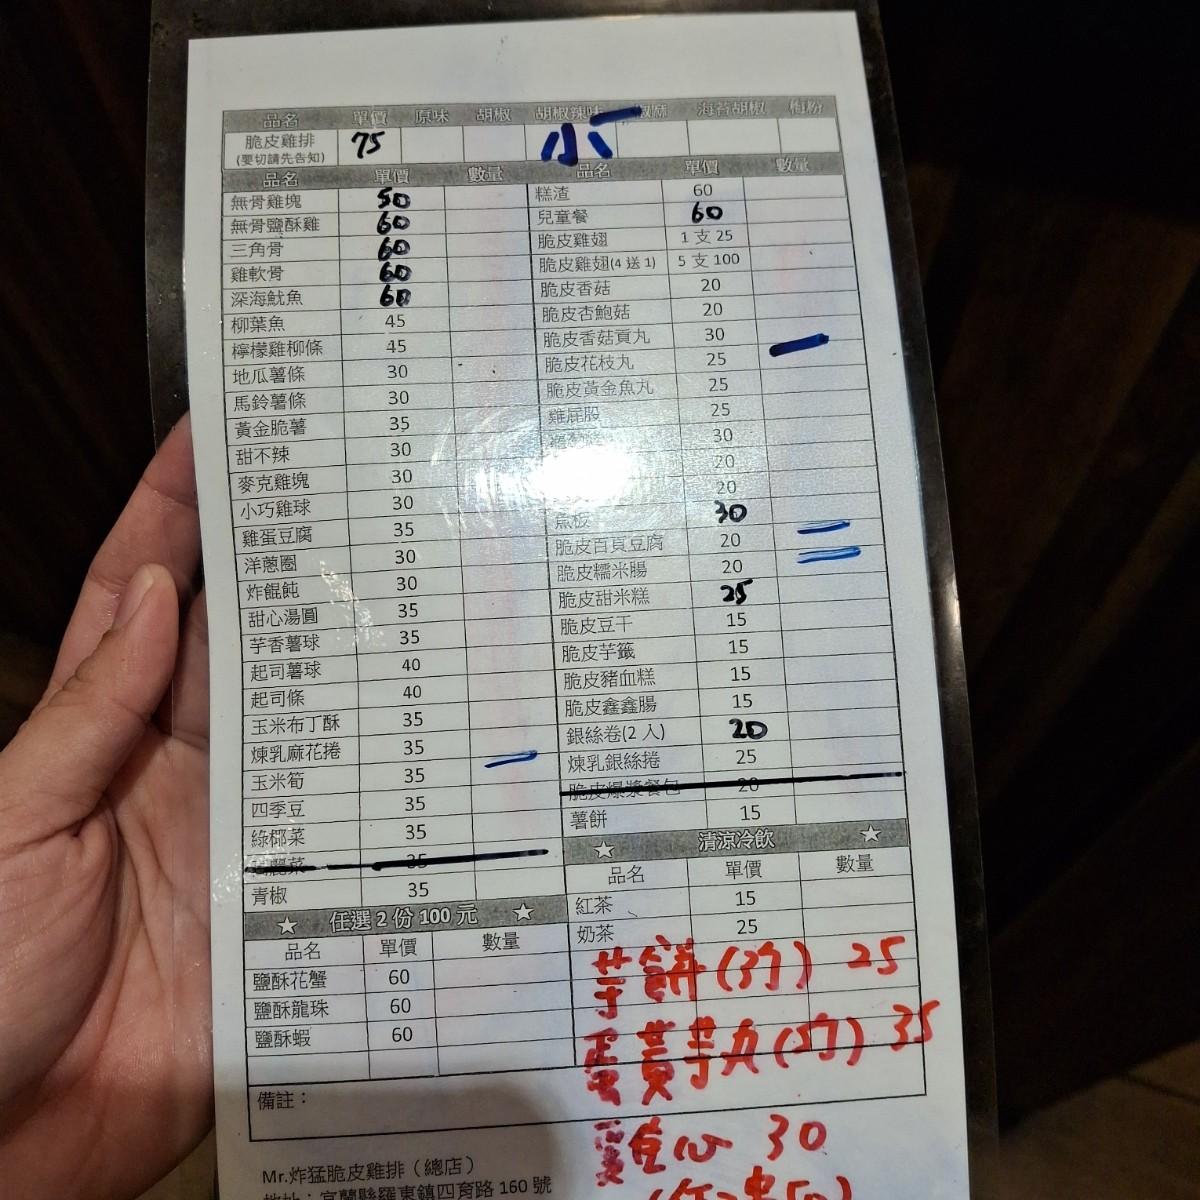 品名 單價 原味 胡椒 胡椒辣味 椒麻 海苔胡椒 梅粉
脆皮雞排 75
(要切請先告知)
小
品名 單價 數量
無骨雞塊 50
無骨鹽酥雞 60
三角骨 60
雞軟骨 60
深海魷魚 60
柳葉魚 45
檸檬雞柳條 45
地瓜薯條 30
馬鈴薯條 30
黃金脆薯 35
甜不辣 30
麥克雞塊 30
小巧雞球 30
雞蛋豆腐 35
洋蔥圈 30
炸餛飩 30
甜心湯圓 35
芋香薯球 35
起司薯球 40
起司條 40
玉米布丁酥 35
煉乳麻花捲 35
玉米筍 35
四季豆 35
綠椰菜 35
麗菜 35
青椒 35
品名 單價 數量
糕渣 60
兒童餐 60
脆皮雞翅 1 支 25
脆皮雞翅(4 送 1) 5 支 100
脆皮香菇 20
脆皮杏鮑菇 20
脆皮香菇貢丸 30
脆皮花枝丸 25
脆皮黃金魚丸 25
雞屁股 25
30
20
20
魚板 30
脆皮百頁豆腐 20
脆皮糯米腸 20
脆皮甜米糕 25
脆皮豆干 15
脆皮芋籤 15
脆皮豬血糕 15
脆皮鑫鑫腸 15
銀絲卷(2 入) 20
煉乳銀絲捲 25
脆皮爆漿餐包 20
薯餅 15
☆ 任選 2 份 100 元 ☆
品名 單價 數量
鹽酥花蟹 60
鹽酥龍珠 60
鹽酥蝦 60
☆ 清涼冷飲 ☆
品名 單價 數量
紅茶 15
奶茶 25
芋餅(3個) 25
蛋黃芋丸(5個) 35
雞心 30
備註：
Mr.炸猛脆皮雞排（總店）
地址：宜蘭縣羅東鎮四育路 160 號